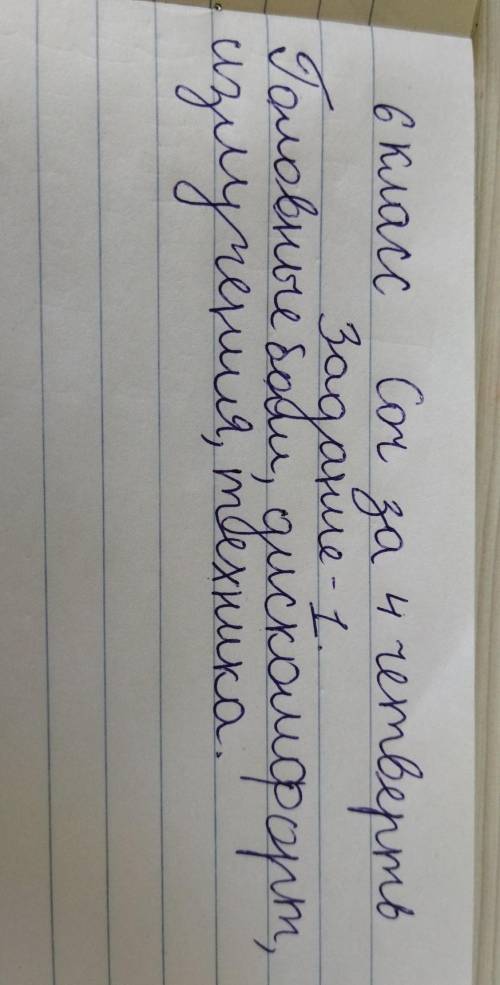 6 класс Соч за 4 четверть
Задание - 1.
Головные боли, дискомфорт,
излучения, техника.